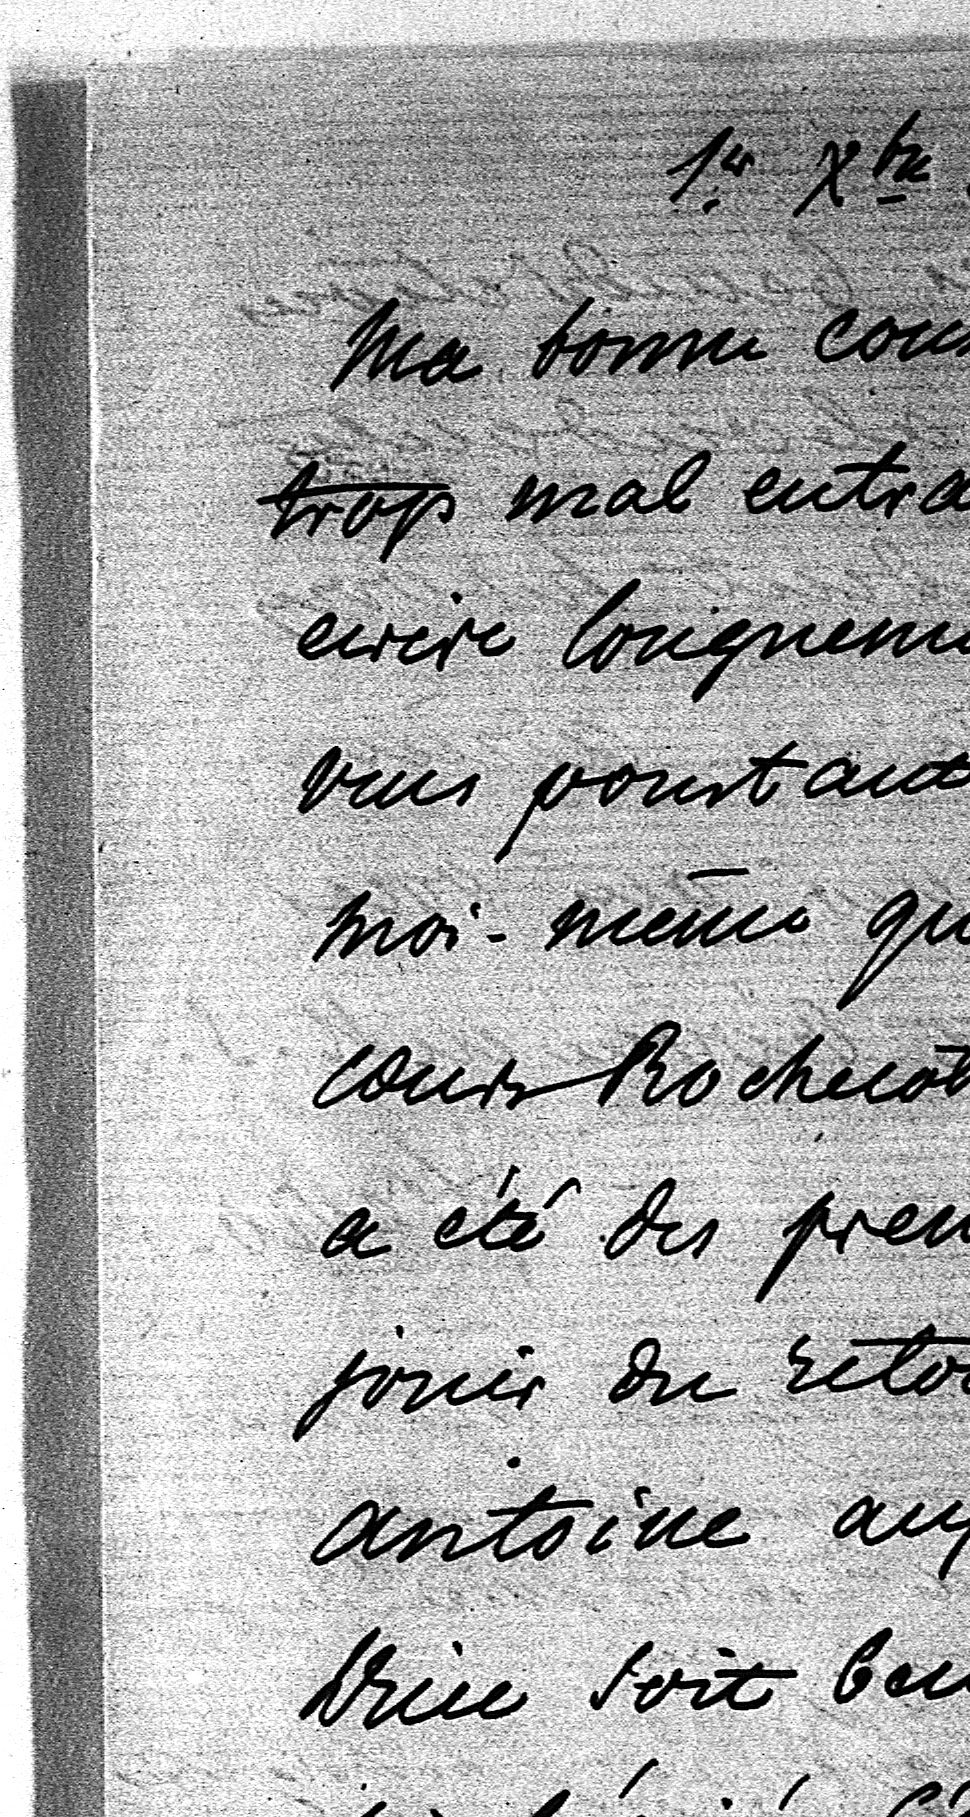 1er Xbre
Ma bonne cous
trop mal entra
ecrire longueme
vous pourtant
moi-même qu
cours Rochecot
a été des prem
jouir du reto
antoine aup
Dieu soit ben